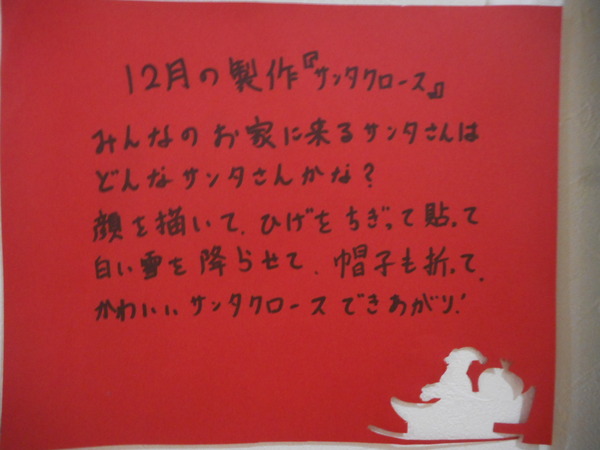 12月の製作『サンタクロース』
みんなのお家に来るサンタさんは
どんなサンタさんかな?
顔を描いて、ひげをちぎって貼って
白い雪を降らせて、帽子も折って、
かわいいサンタクロースできあがり!